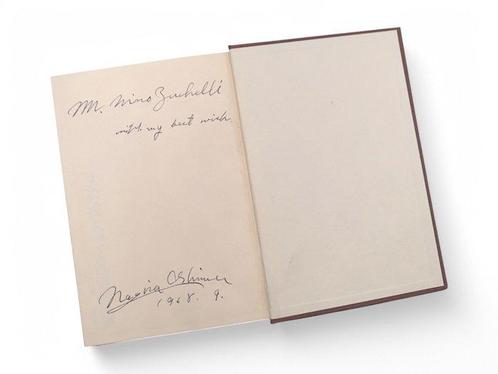 Mr. Nino Zucchelli
with my best wish.
Nagisa Oshima
1968. 9.